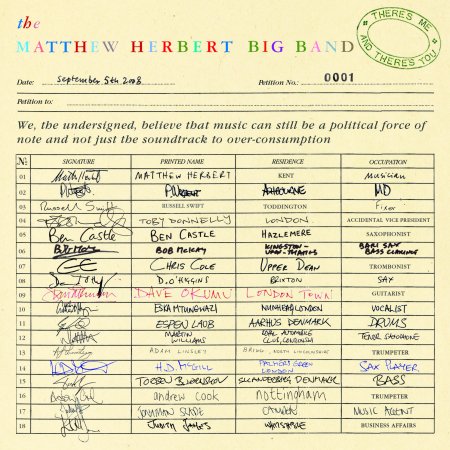 the
MATTHEW HERBERT BIG BAND
THERES ME AND THERES YOU
Date: september 5th 2008 Petition No.: 0001
Petition to:
We, the undersigned, believe that music can still be a political force of
note and not just the soundtrack to over-consumption
No. SIGNATURE PRINTED NAME RESIDENCE OCCUPATION
01 MATTHEW HERBERT KENT Musician
02 MD
03 Russell Swift RUSSELL SWIFT TODDINGTON Fixer
04 TOBY DONNELLY LONDON ACCIDENTAL VICE PRESIDENT
05 Ben Castle BEN CASTLE HAZLEMERE SAXOPHONIST
06 BOB McKAY KINGSTON-UPON-THAMES BARI SAX BASS CLARINET
07 CHRIS COLE UPPER DEAN TROMBONIST
08 D. O'HIGGINS BRIXTON SAX
09 DAVE OKUMU LONDON TOWN GUITARIST
10 NUNHEAD LONDON VOCALIST
11 ESPEN LAUB AARHUS DENMARK DRUMS
12 MARTIN WILLIAMS TENOR SAXOPHONE
13 ADAM LINSLEY BRIGG, NORTH LINCOLNSHIRE TRUMPETER
14 H.D. McGILL PALMERS GREEN LONDON SAX PLAYER
15 SKANDERBORG DENMARK BASS
16 andrew cook nottingham TRUMPETER
17 MUSIC AGENT
18 JUDITH WHITSTABLE BUSINESS AFFAIRS